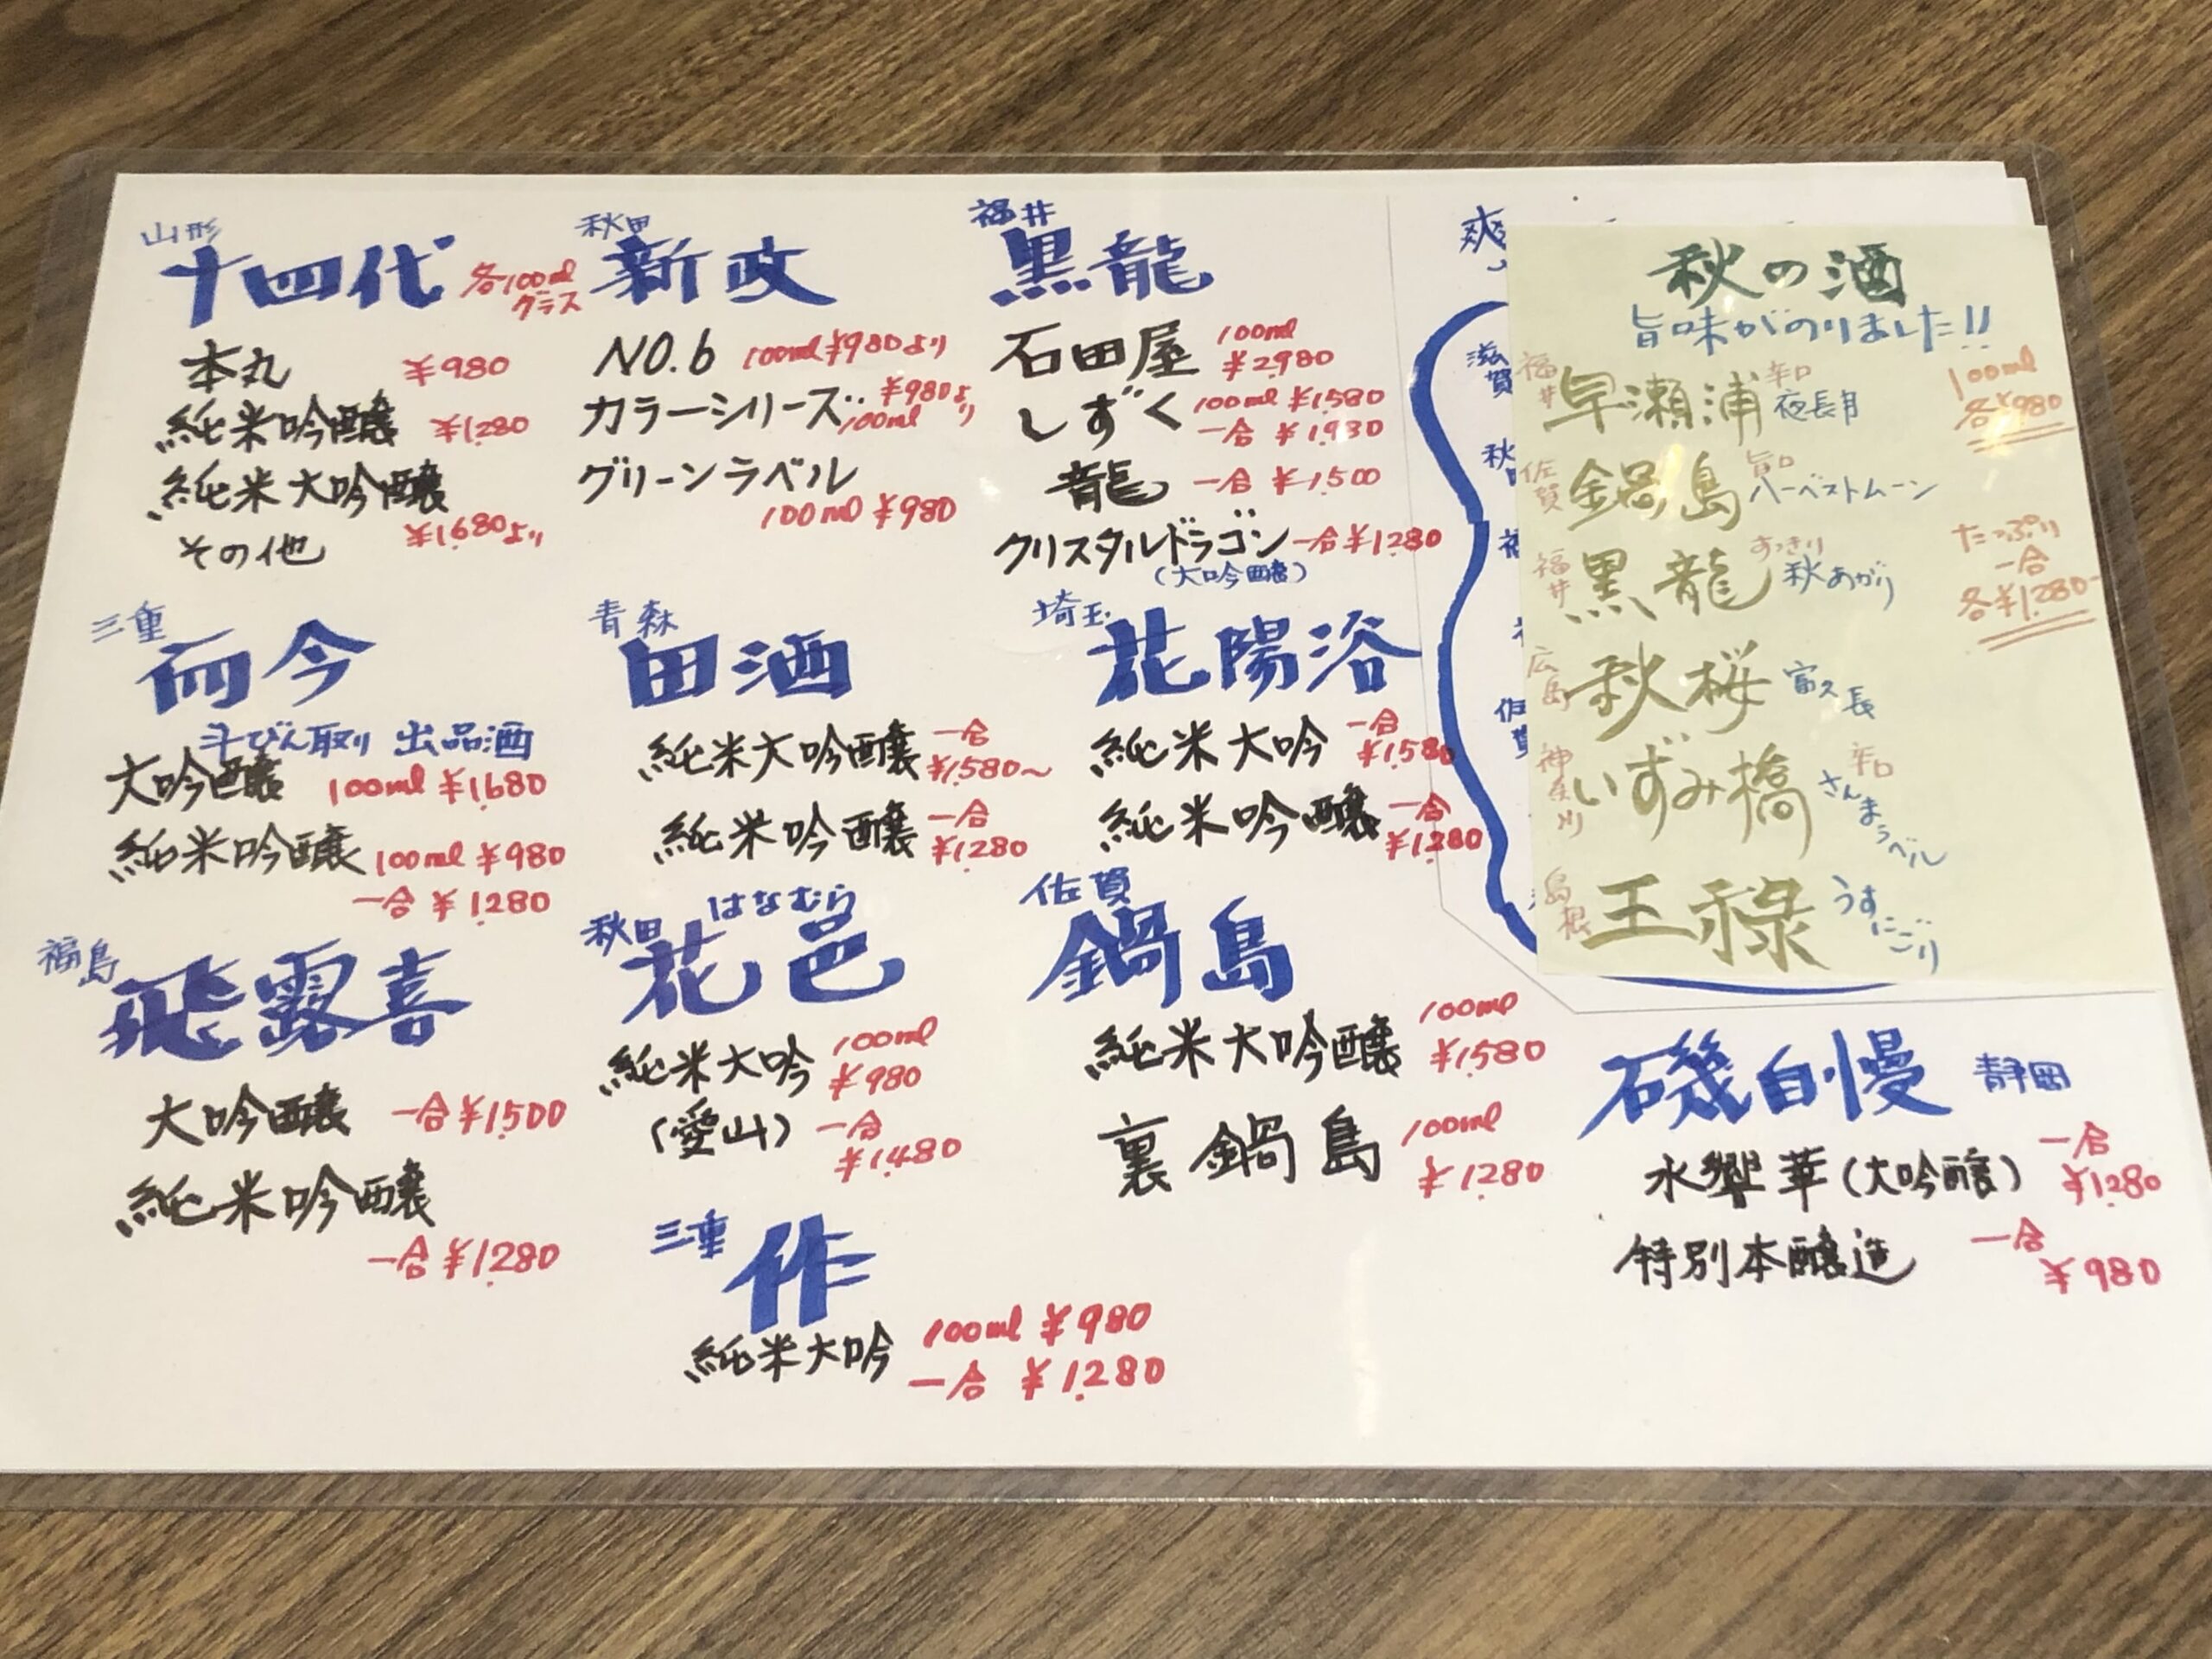 山形
十四代 各100ml
グラス
本丸 ¥980
純米吟醸 ¥1.280
純米大吟醸
その他 ¥1.680より
秋田
新政
NO.6 100ml ¥980より
カラーシリーズ‥ ¥980より
100ml
グリーンラベル
100ml ¥980
福井
黒龍
石田屋 100ml
¥2.980
しずく 100ml ¥1.580
一合 ¥1.980
龍 一合 ¥1.500
クリスタルドラゴン 一合 ¥1.280
(大吟醸)
三重
而今
斗びん取り 出品酒
大吟醸 100ml ¥1.680
純米吟醸 100ml ¥980
一合 ¥1280
青森
田酒
純米大吟醸 一合
¥1.580〜
純米吟醸 一合
¥1280
埼玉
花陽浴
純米大吟 一合
¥1.580
純米吟醸 一合
¥1280
福島
飛露喜
大吟醸 一合 ¥1.500
純米吟醸
一合 ¥1.280
はなむら
秋田
花邑
純米大吟 100ml
¥980
(愛山) 一合
¥1.480
佐賀
鍋島
純米大吟醸 100ml
¥1.580
裏鍋島 100ml
¥1280
三重
作
純米大吟 100ml ¥980
一合 ¥1.280
爽
滋賀
秋
福
佐賀
秋の酒
旨味がのりました!!
福井 早瀬浦 辛口
夜長月
100ml
各¥980
佐賀 鍋島 旨口
ハーベストムーン
福井 黒龍 すっきり
秋あがり
たっぷり
一合
各¥1.280-
広島 秋桜 富久長
神奈川 いずみ橋 辛口
さんまラベル
島根 王祿 うすにごり
磯自慢 静岡
水響華(大吟醸) 一合
¥1280
特別本醸造 一合
¥980